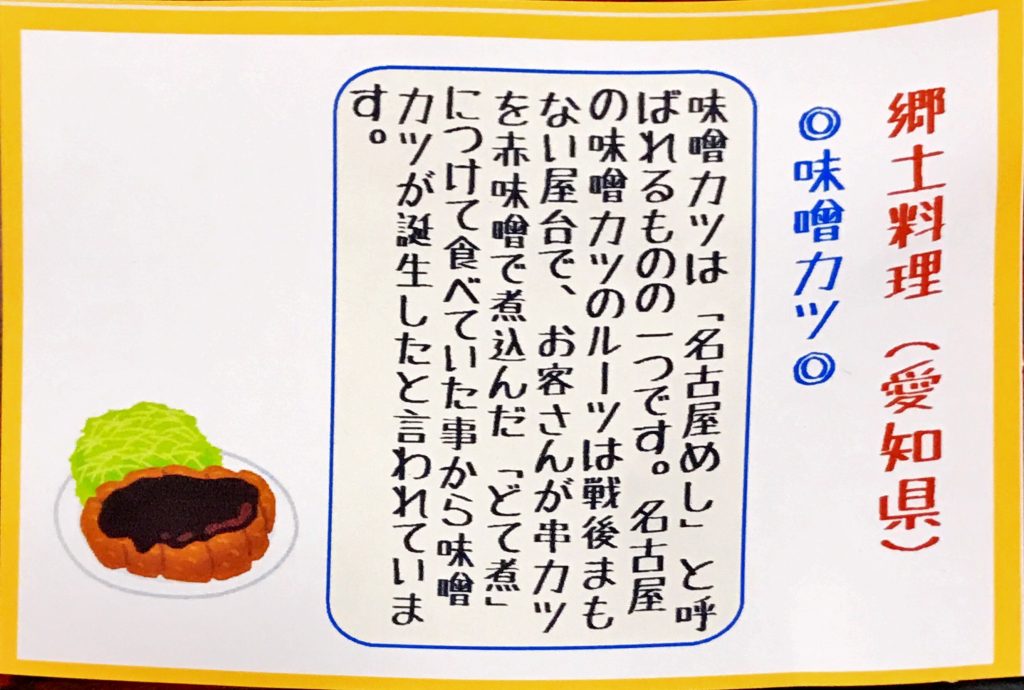 郷土料理（愛知県）
◎味噌カツ◎
味噌カツは「名古屋めし」と呼
ばれるものの一つです。名古屋
の味噌カツのルーツは戦後まも
ない屋台で、お客さんが串カツ
を赤味噌で煮込んだ「どて煮」
につけて食べていた事から味噌
カツが誕生したと言われていま
す。